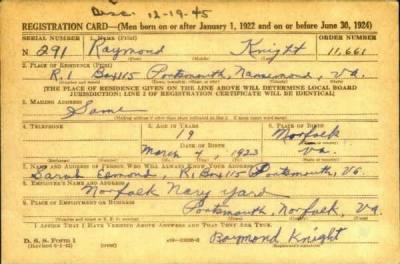 Dec. 12-19-45
REGISTRATION CARD—(Men born on or after January 1, 1922 and on or before June 30, 1924)
SERIAL NUMBER 1. NAME (Print) ORDER NUMBER
N 291 Raymond Knight 11,661
(First) (Middle) (Last)
2. PLACE OF RESIDENCE (Print)
R.1 Box 115 Portsmouth, Nansemond, Va.
[THE PLACE OF RESIDENCE GIVEN ON THE LINE ABOVE WILL DETERMINE LOCAL BOARD
JURISDICTION; LINE 2 OF REGISTRATION CERTIFICATE WILL BE IDENTICAL]
3. MAILING ADDRESS
Same
4. TELEPHONE 5. AGE IN YEARS 6. PLACE OF BIRTH
19 Norfolk
DATE OF BIRTH
March 7, 1923 Va.
7. NAME AND ADDRESS OF PERSON WHO WILL ALWAYS KNOW YOUR ADDRESS
Sarah Edmond, R.1 Box 115 Portsmouth, Va.
8. EMPLOYER'S NAME AND ADDRESS
Norfolk Navy Yard
9. PLACE OF EMPLOYMENT OR BUSINESS
Portsmouth, Norfolk, Va.
I AFFIRM THAT I HAVE VERIFIED ABOVE ANSWERS AND THAT THEY ARE TRUE.
D. S. S. FORM 1
Raymond Knight